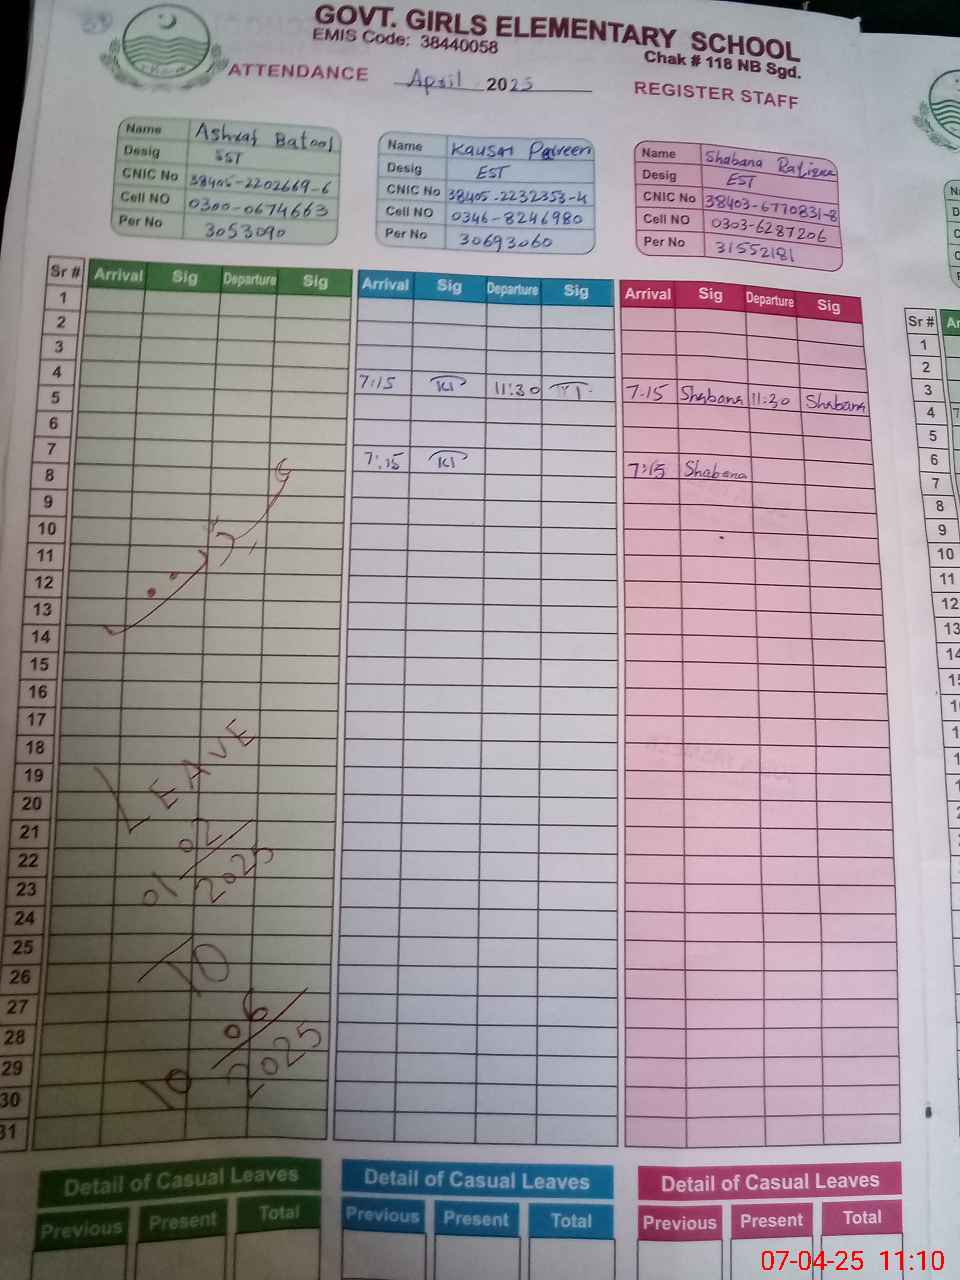 GOVT. GIRLS ELEMENTARY SCHOOL
EMIS Code: 38440058
Chak # 118 NB Sgd.
ATTENDANCE April 2025 REGISTER STAFF
Name Ashraf Batool
Desig SST
CNIC No 38405-2202669-6
Cell NO 0300-0674663
Per No 3053090
Name Kausar Parveen
Desig EST
CNIC No 38405-2232353-4
Cell NO 0346-8246980
Per No 30693060
Name Shabana
Desig EST
CNIC No 38403-6770831-8
Cell NO 0303-6287206
Per No 31552181
Sr # Arrival Sig Departure Sig Arrival Sig Departure Sig Arrival Sig Departure Sig
1
2
3
4 7:15 11:30 7:15 Shabana 11:30 Shabana
5
6
7 7:15 7:15 Shabana
8
9
10
11
12
13
14
15
16
17
18
19
20
21
22
23
24
25
26
27
28
29
30
31
LEAVE
01/02/2025
TO
10/06/2025
Detail of Casual Leaves
Previous Present Total
Detail of Casual Leaves
Previous Present Total
Detail of Casual Leaves
Previous Present Total
Sr #
1
2
3
4
5
6
7
8
9
10
11
12
13
07-04-25 11:10